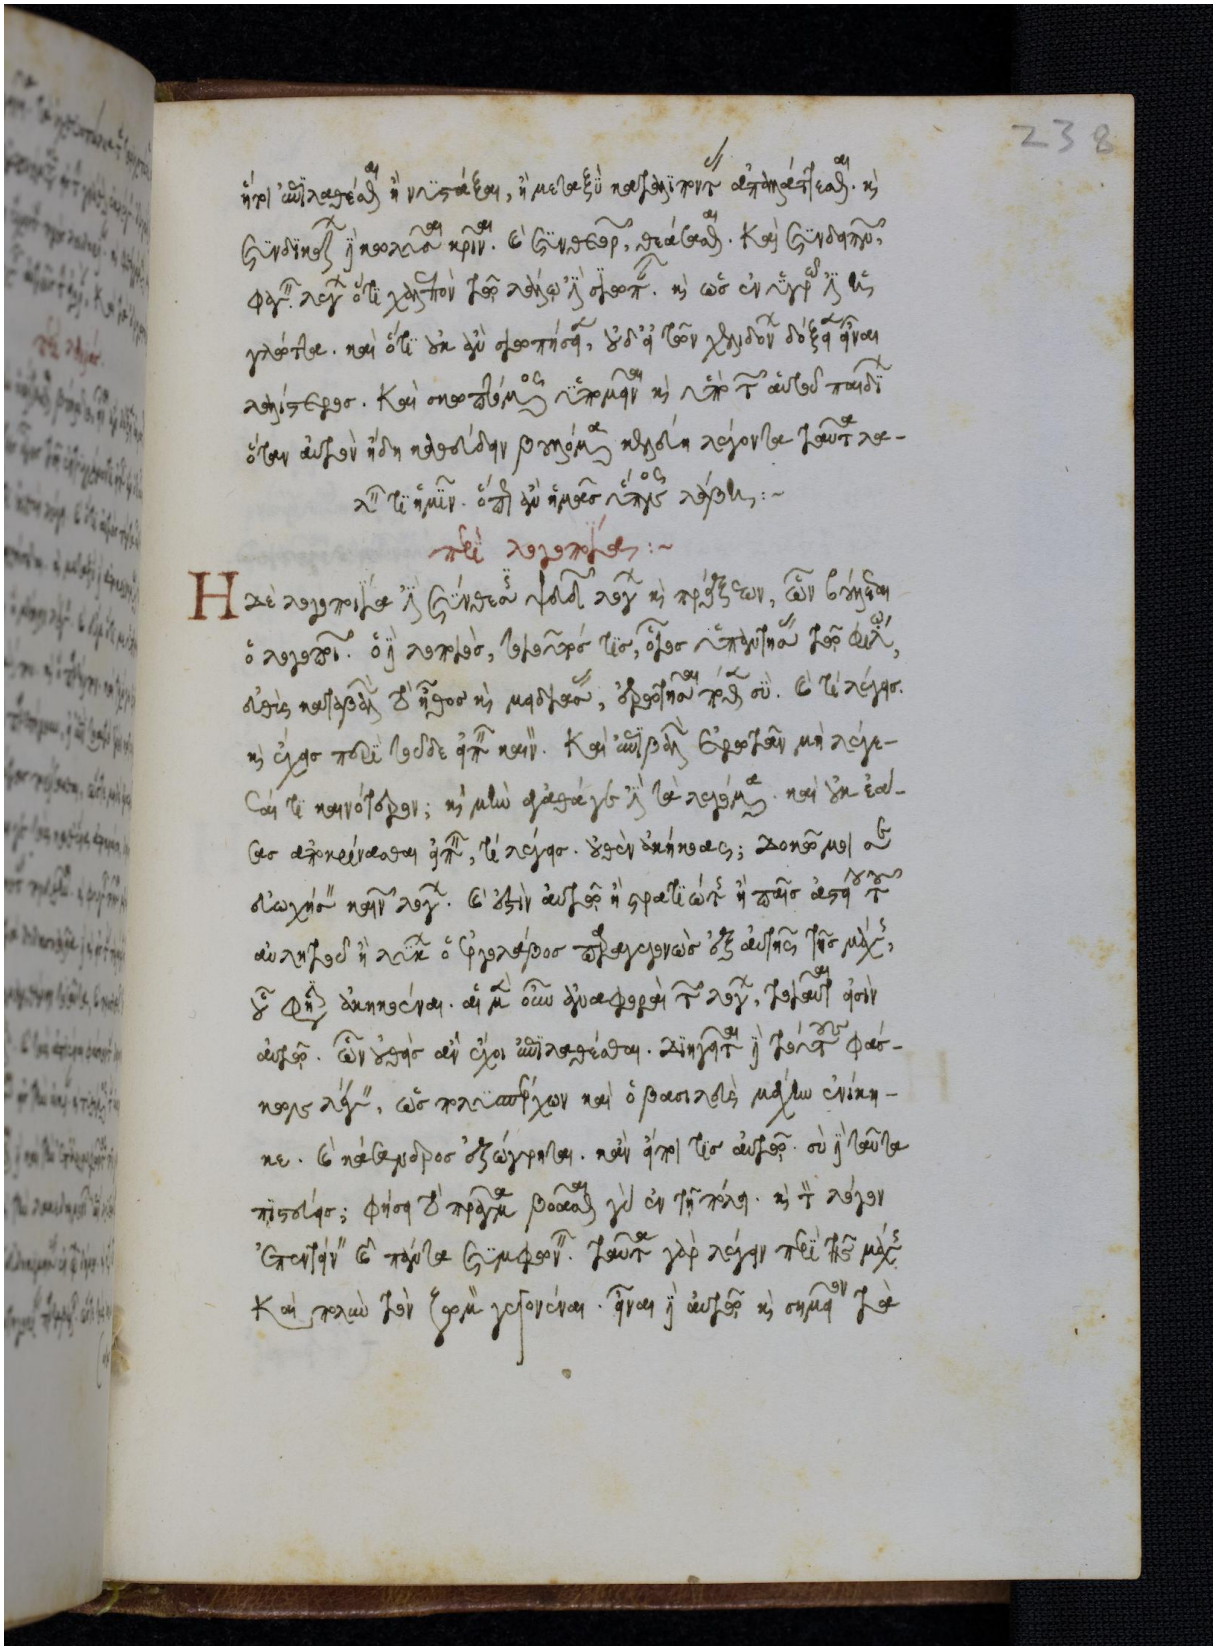 ἤτοι ἐπιλαθέσθαι ἢ νυστάξαι, ἢ μεταξὺ καταλιπόντας ἀπαλλάττεσθαι. καὶ
συνδικάζων δὲ κωλῦσαι κρῖναι. καὶ συνθεωρῶν, θεάσασθαι. Καὶ συνδειπνῶν,
φαγεῖν. λέγων ὅτι χαλεπὸν τῷ λάλῳ ἐστὶ σιωπᾶν. καὶ ὡς ἐν ὑγρῷ ἐστιν ἡ
γλῶττα. καὶ ὅτι οὐκ ἂν σιωπήσειεν, οὐδ' εἰ τῶν χελιδόνων δόξειεν εἶναι
λαλίστερος. Καὶ σκωπτόμενος ὑπομεῖναι καὶ ὑπὸ τῶν αὑτοῦ παιδίων
ὅταν αὐτὸν ἤδη καθεύδειν βουλόμενα κελεύη λέγοντα ταῦτα λα-
λεῖν τι ἡμῖν. ὅπως ἂν ἡμᾶς ὕπνος λάβῃ :~
περὶ λογοποιίας :~
Η δὲ λογοποιία ἐστὶ σύνθεσις ψευδῶν λόγων καὶ πράξεων, ὧν βούλεται
ὁ λογοποιῶν. ὁ δὲ λογοποιὸς, τοιοῦτός τις, οἷος ἀπαντήσας τῷ φίλῳ,
εὐθὺς καταβαλὼν τὸ ἦθος καὶ μειδιάσας, ἐρωτῆσαι πόθεν σὺ. καὶ τί λέγεις.
καὶ ἔχεις περὶ τοῦδε εἰπεῖν καινὸν. Καὶ ἐπιβαλὼν ἐρωτᾶν μὴ λέγε-
ταί τι καινότερον; καὶ μὴν ἀγαθά γέ ἐστι τὰ λεγόμενα. καὶ οὐκ ἐά-
σας ἀποκρίνασθαι εἰπεῖν, τί λέγεις. οὐθὲν ἀκήκοας; Δοκῶ μοι σε
εὐωχήσειν καινῶν λόγων. καὶ ἔστιν αὐτῷ ἢ στρατιώτης ἢ παῖς ἀστείου τοῦ
αὐλητοῦ ἢ λύκων ὁ ἐργολάβος παραγεγονὼς ἐξ αὐτῆς τῆς μάχης,
οὗ φησιν ἀκηκοέναι. αἱ μὲν οὖν ἀναφοραὶ τῶν λόγων, τοιαῦται εἰσὶν
αὐτῷ. ὧν οὐθεὶς ἂν ἔχοι ἐπιλαθέσθαι. Διηγεῖται δὲ τούτους φάσ-
κων λέγειν, ὡς πολυσπέρχων καὶ ὁ βασιλεὺς μάχην ἐνίκη-
κε. καὶ κάσανδρος ἐζώγρηται. κἂν εἴποι τις αὐτῷ. σὺ δὲ ταῦτα
πιστεύεις; φήσει τὸ πρᾶγμα βοᾶσθαι γὰρ ἐν τῇ πόλει. καὶ τὸν λόγον
ἐπεντείνειν καὶ πάντα συμφωνεῖν. ταῦτα γὰρ λέγειν περὶ τῆς μάχης
Καὶ πολὺν τὸν ζωμὸν γεγονέναι. εἶναι δὲ αὐτῷ καὶ σημεῖον τὰ
238